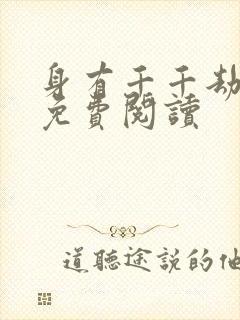 身有千千劫
免費閱讀
道聽途說的他